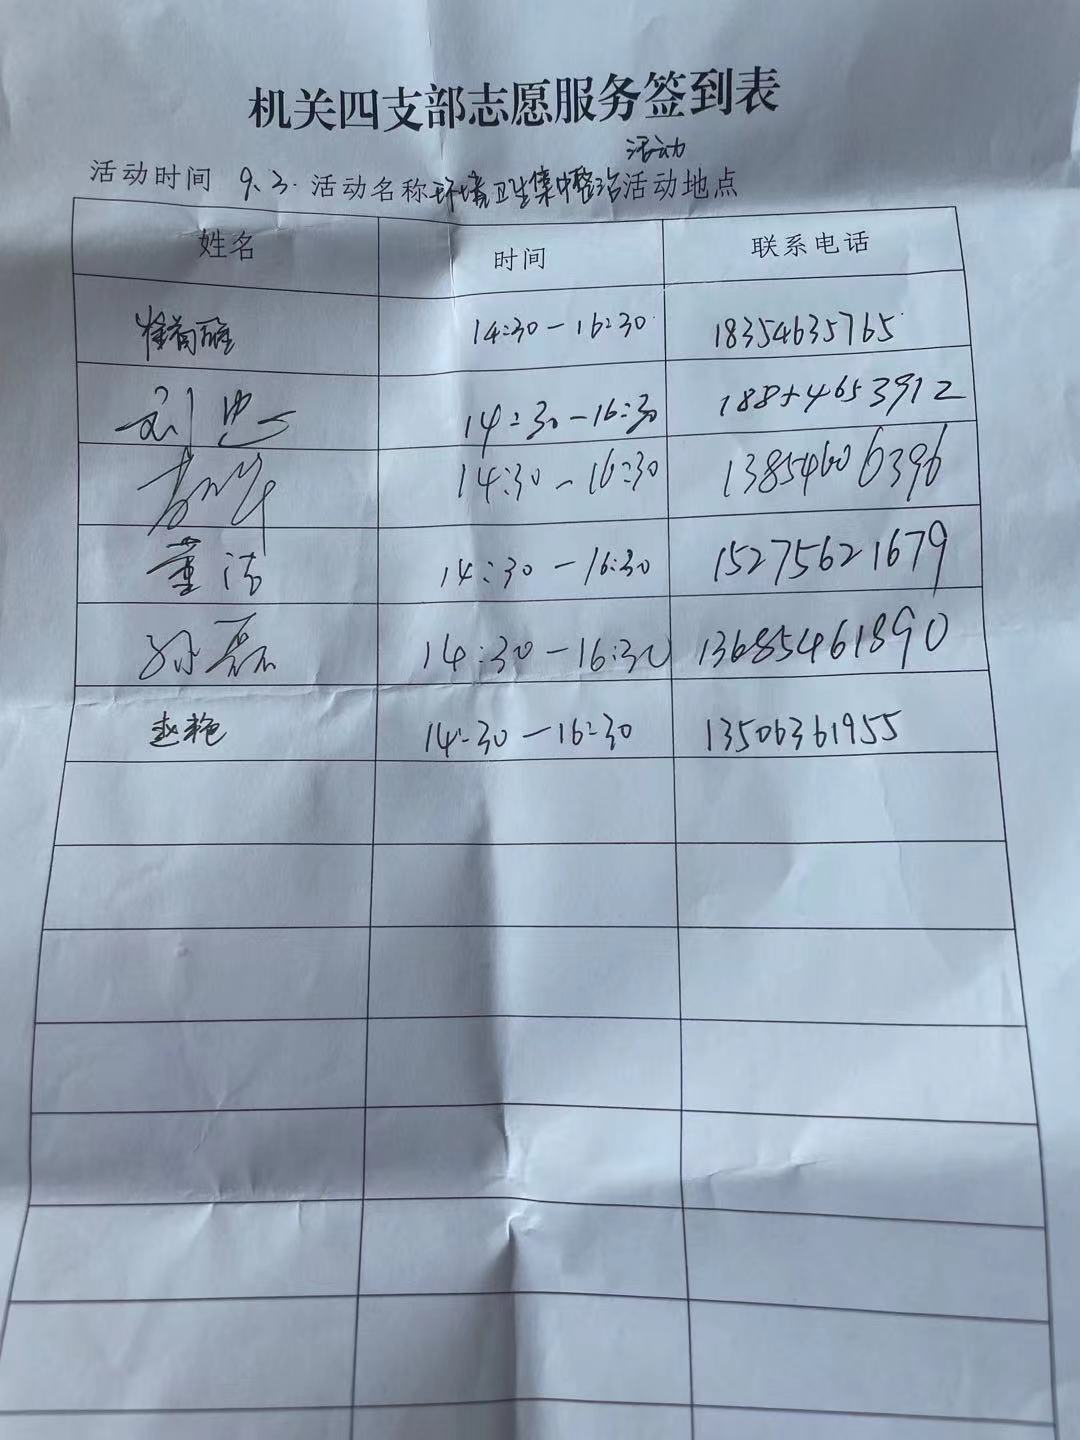 机关四支部志愿服务签到表
活动
活动时间 9.3. 活动名称 环境卫生集中整治 活动地点
姓名 时间 联系电话
14:30-16:30 18354635765
刘忠 14:30-16:30 188 4653912
14:30-16:30 13854606396
董洁 14:30-16:30 15275621679
孙磊 14:30-16:30 13685461890
赵艳 14:30-16:30 13506361955